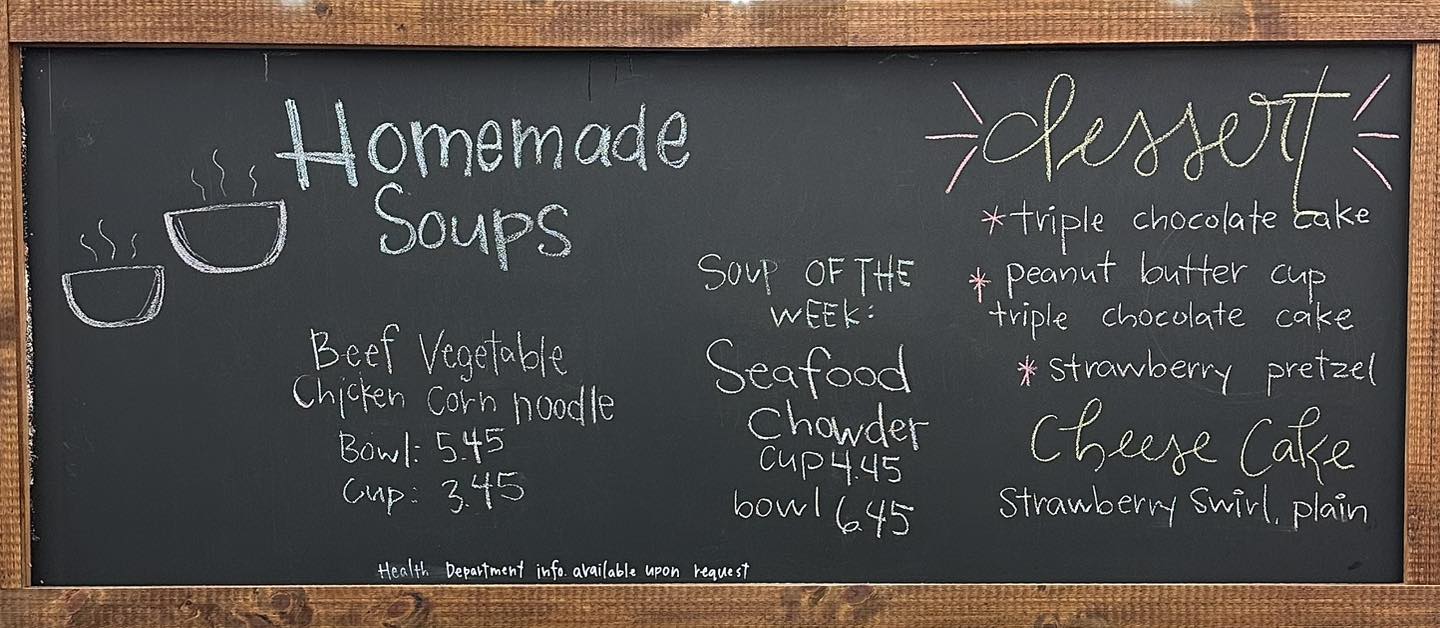 Homemade
Soups
Beef Vegetable
Chicken Corn noodle
Bowl: 5.45
Cup: 3.45
SOUP OF THE
WEEK:
Seafood
Chowder
cup 4.45
bowl 6.45
dessert
* triple chocolate cake
* peanut butter cup
triple chocolate cake
* strawberry pretzel
Cheese Cake
Strawberry Swirl, plain
Health Department info. available upon request